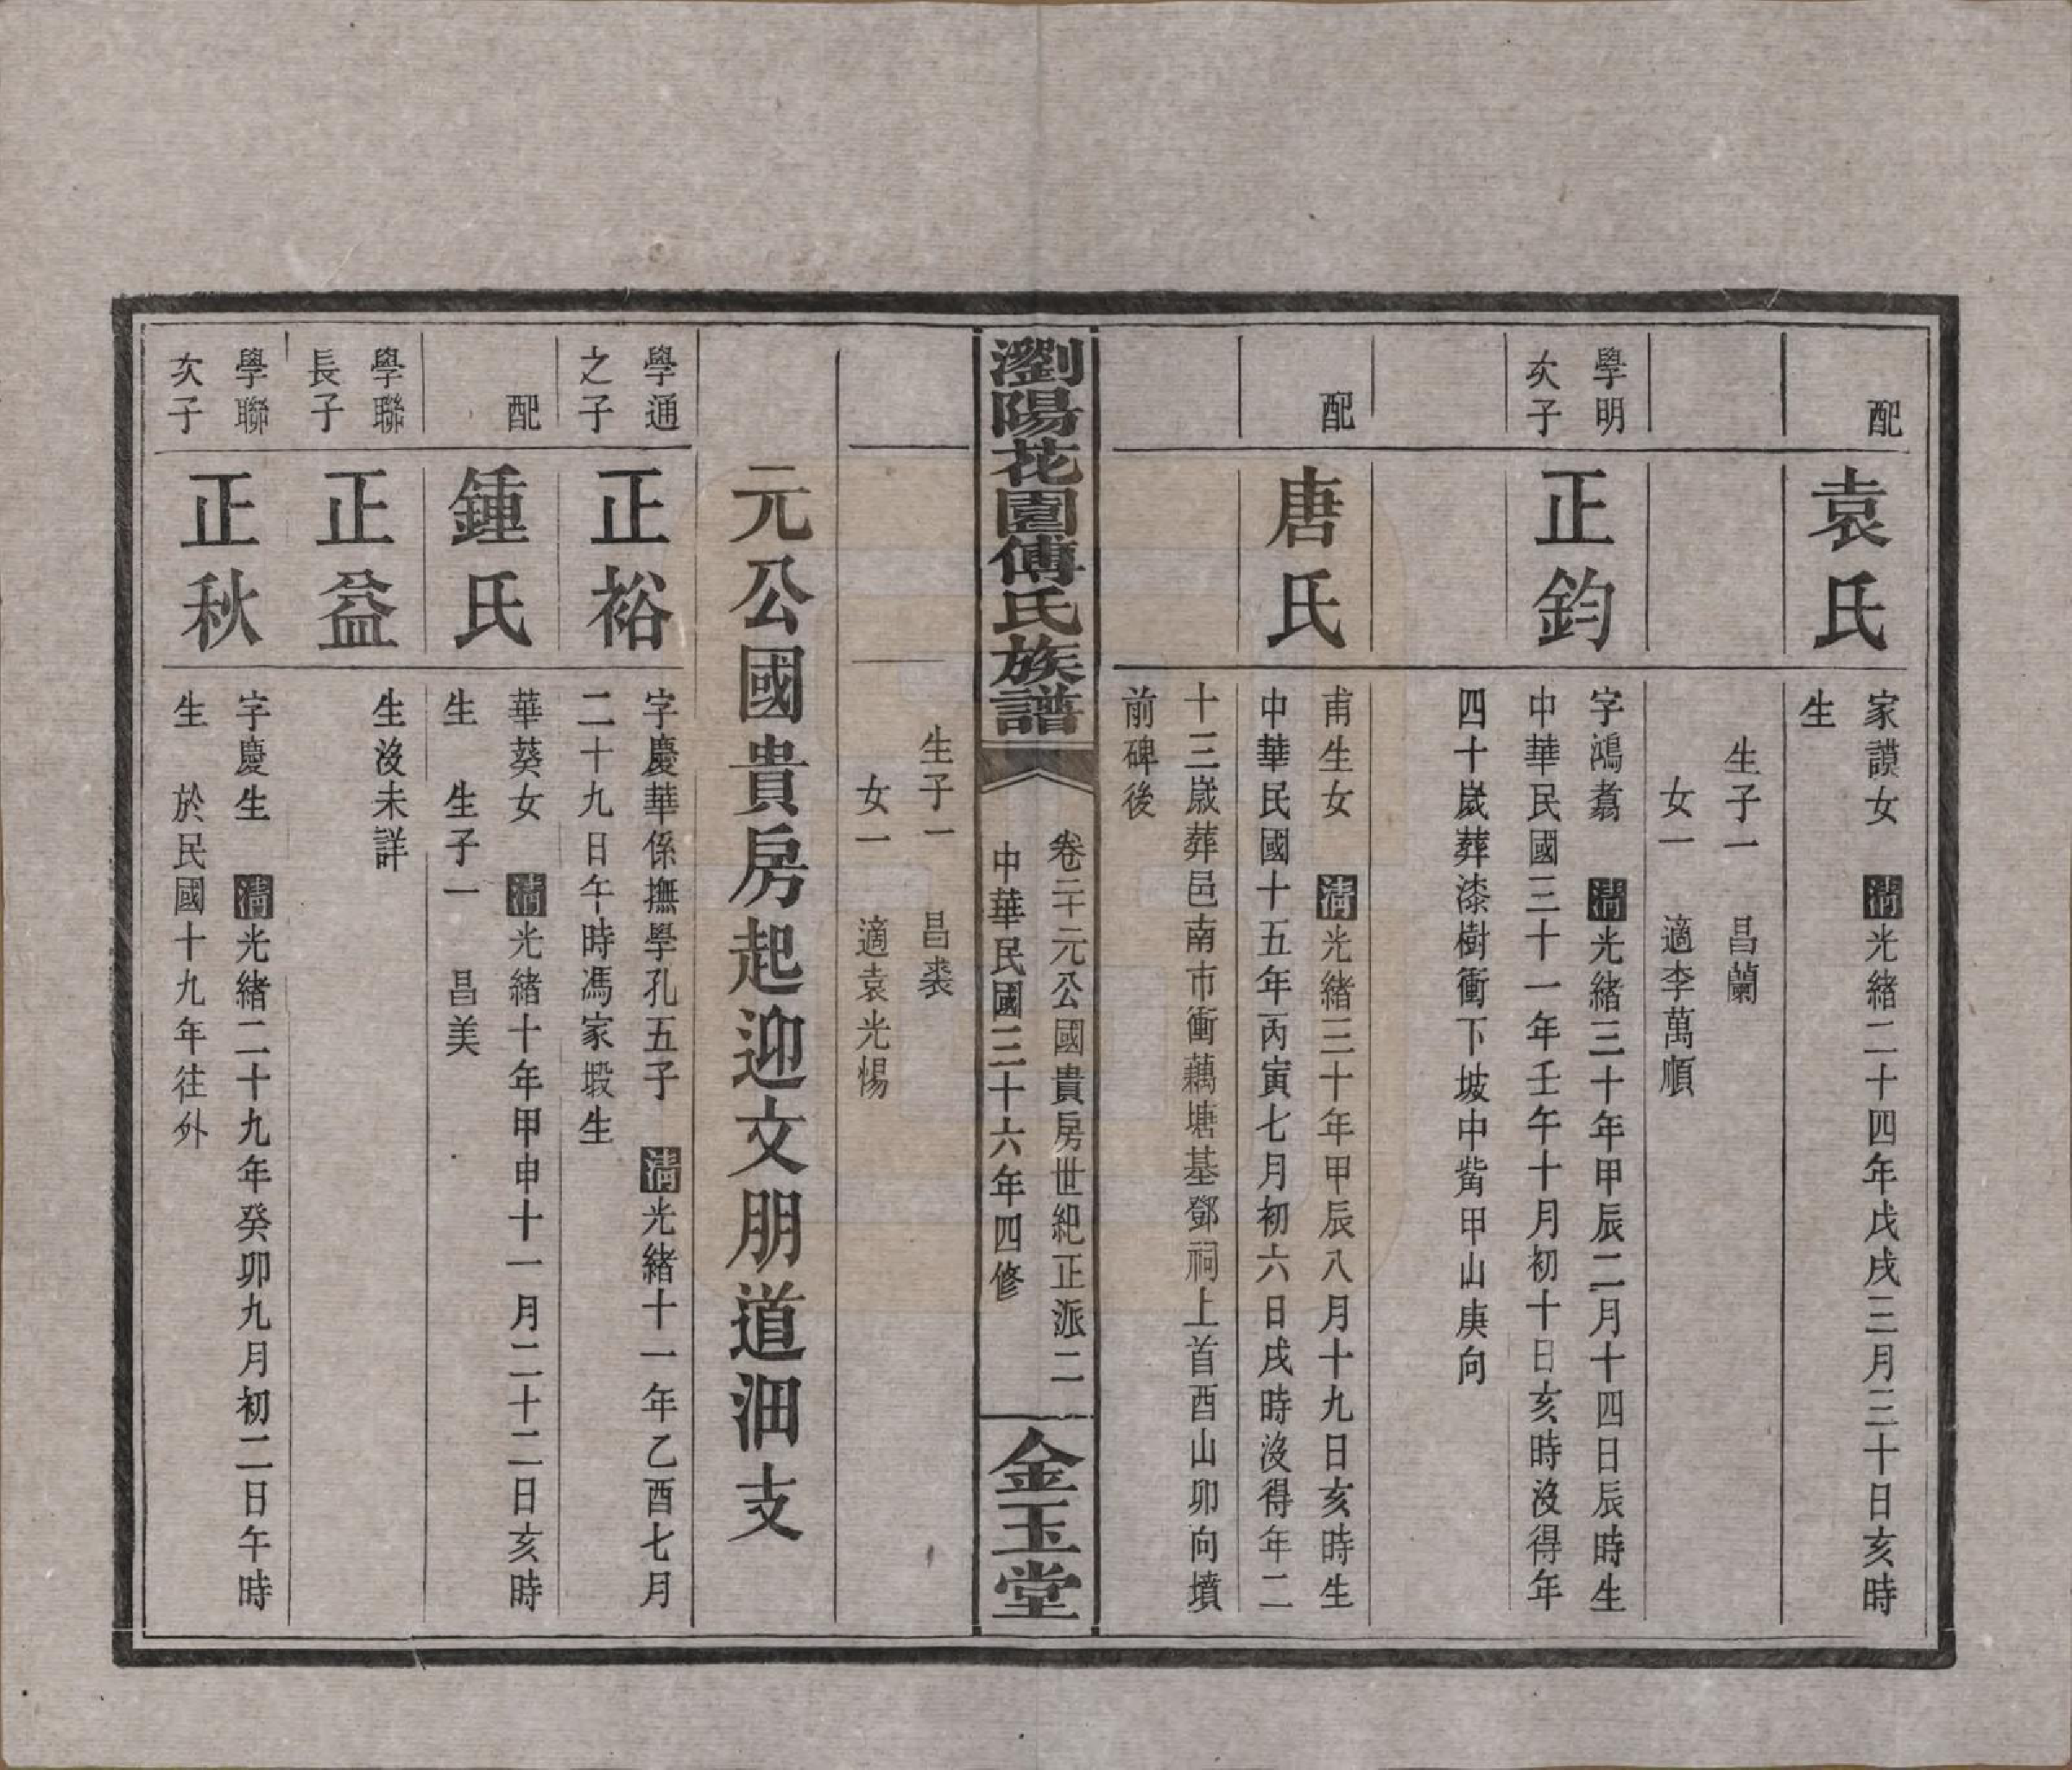 配
袁氏
家謨女 清光緒二十四年戊戌三月三十日亥時
生
生子一 昌蘭
女一 適李萬順
學明
次子
正鈞
字鴻翥 清光緒三十年甲辰二月十四日辰時生
中華民國三十一年壬午十月初十日亥時沒得年
四十歲葬漆樹衝下坡中嘴甲山庚向
配
唐氏
甫生女 清光緒三十年甲辰八月十九日亥時生
中華民國十五年丙寅七月初六日戌時沒得年二
十三歲葬邑南市衝藕塘基鄧祠上首酉山卯向墳
前碑後
瀏陽花園傅氏族譜
卷二十元公國貴房世紀正派二
中華民國三十六年四修
金玉堂
生子一 昌裘
女一 適袁光惕
元公國貴房起迎文朋道沺支
學通
之子
正裕
字慶華係撫學孔五子 清光緒十一年乙酉七月
二十九日午時馮家塅生
配
鍾氏
華葵女 清光緒十年甲申十一月二十二日亥時
生 生子一 昌美
學聯
長子
正益
生沒未詳
學聯
次子
正秋
字慶生 清光緒二十九年癸卯九月初二日午時
生 於民國十九年往外